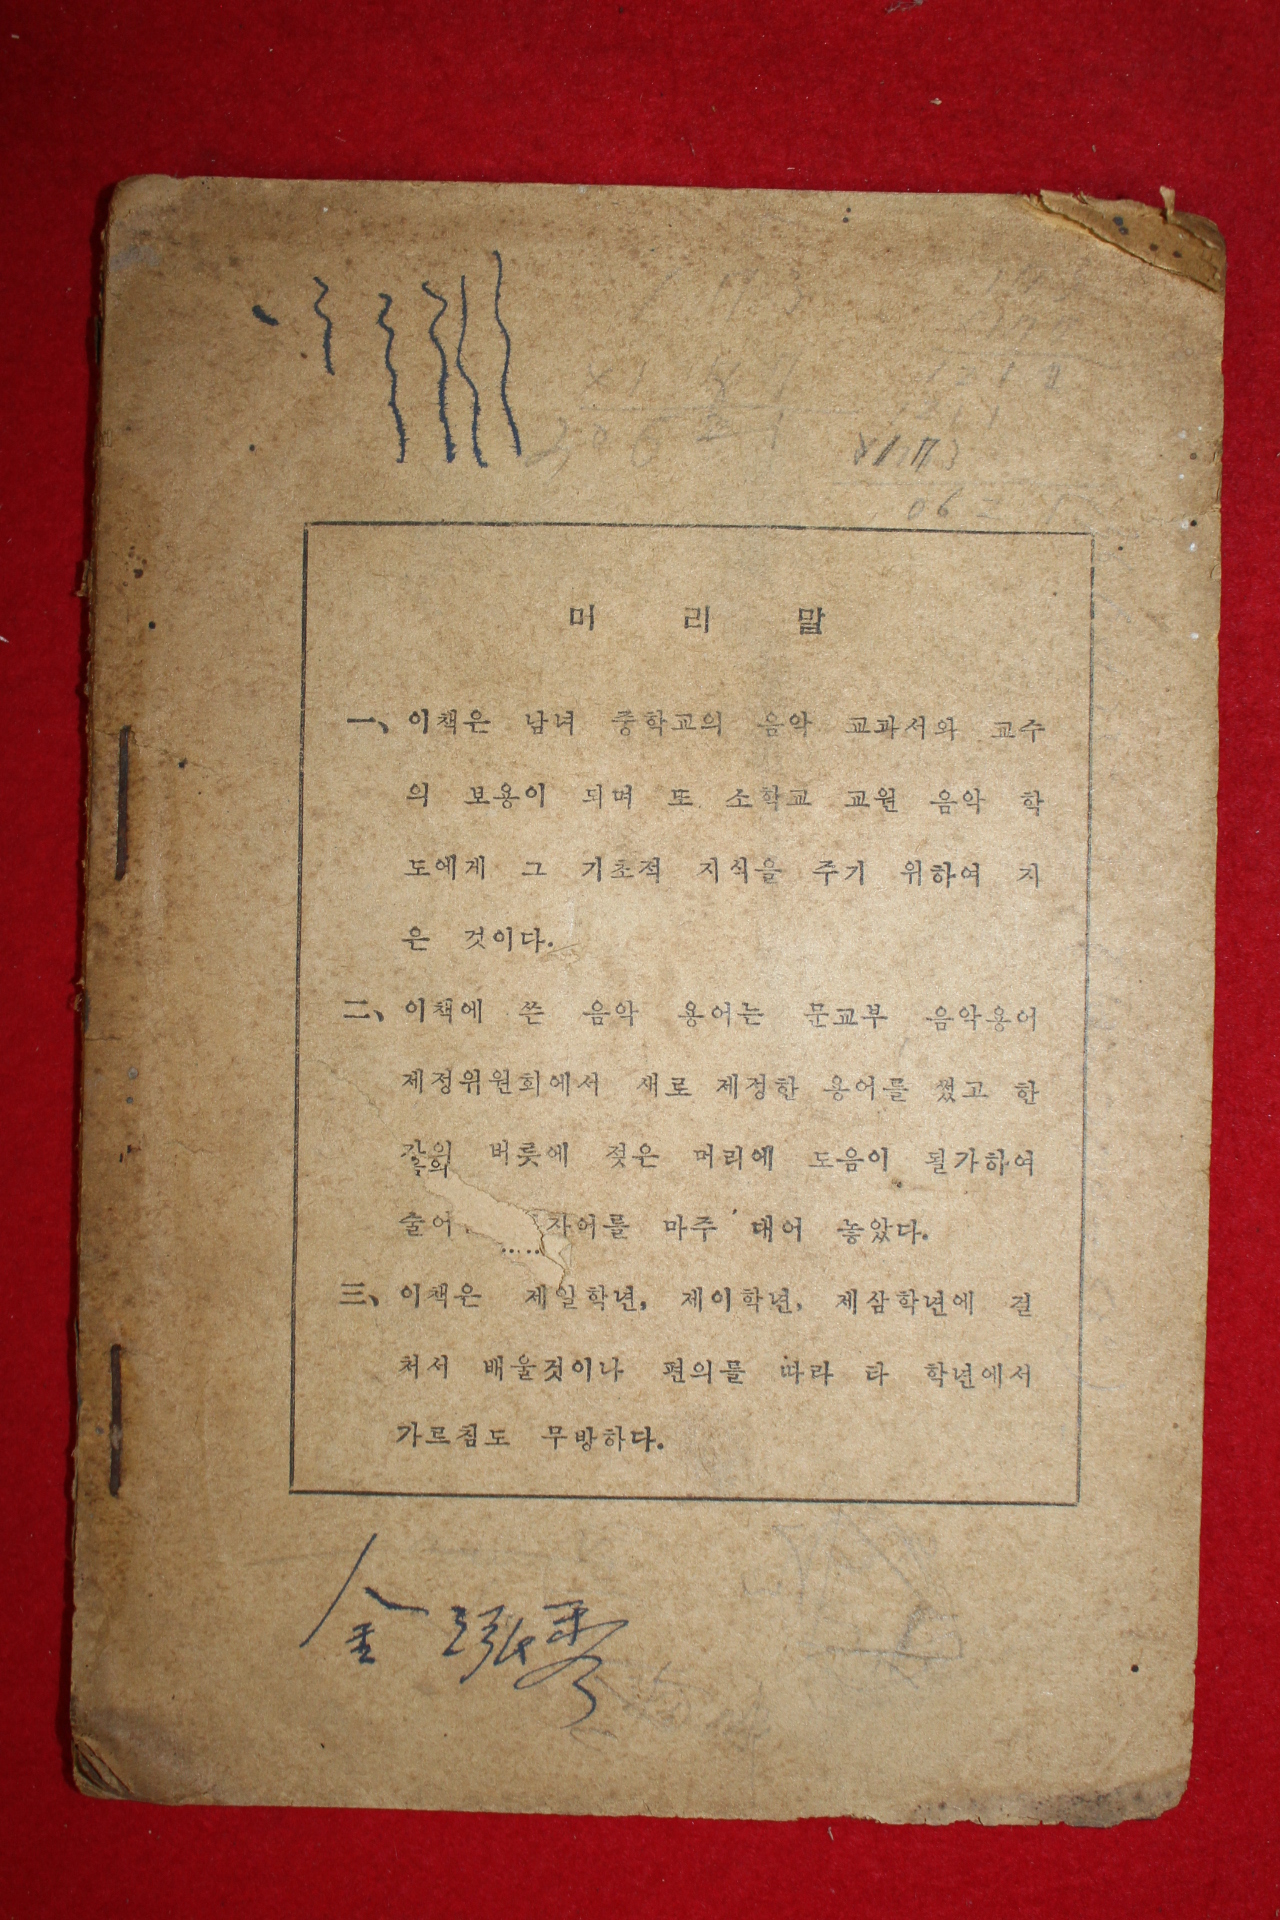 머 리 말
一、이책은 남녀 중학교의 음악 교과서와 교수
의 보용이 되며 또 소학교 교원 음악 학
도에게 그 기초적 지식을 주기 위하여 지
은 것이다.
二、이책에 쓴 음악 용어는 문교부 음악용어
제정위원회에서 새로 제정한 용어를 썼고 한
버릇에 젖은 머리에 도음이 될가하여
술어 자어를 마주 대어 놓았다.
三、이책은 제일학년, 제이학년, 제삼학년에 걸
처서 배울것이나 편의를 따라 타 학년에서
가르침도 무방하다.
金